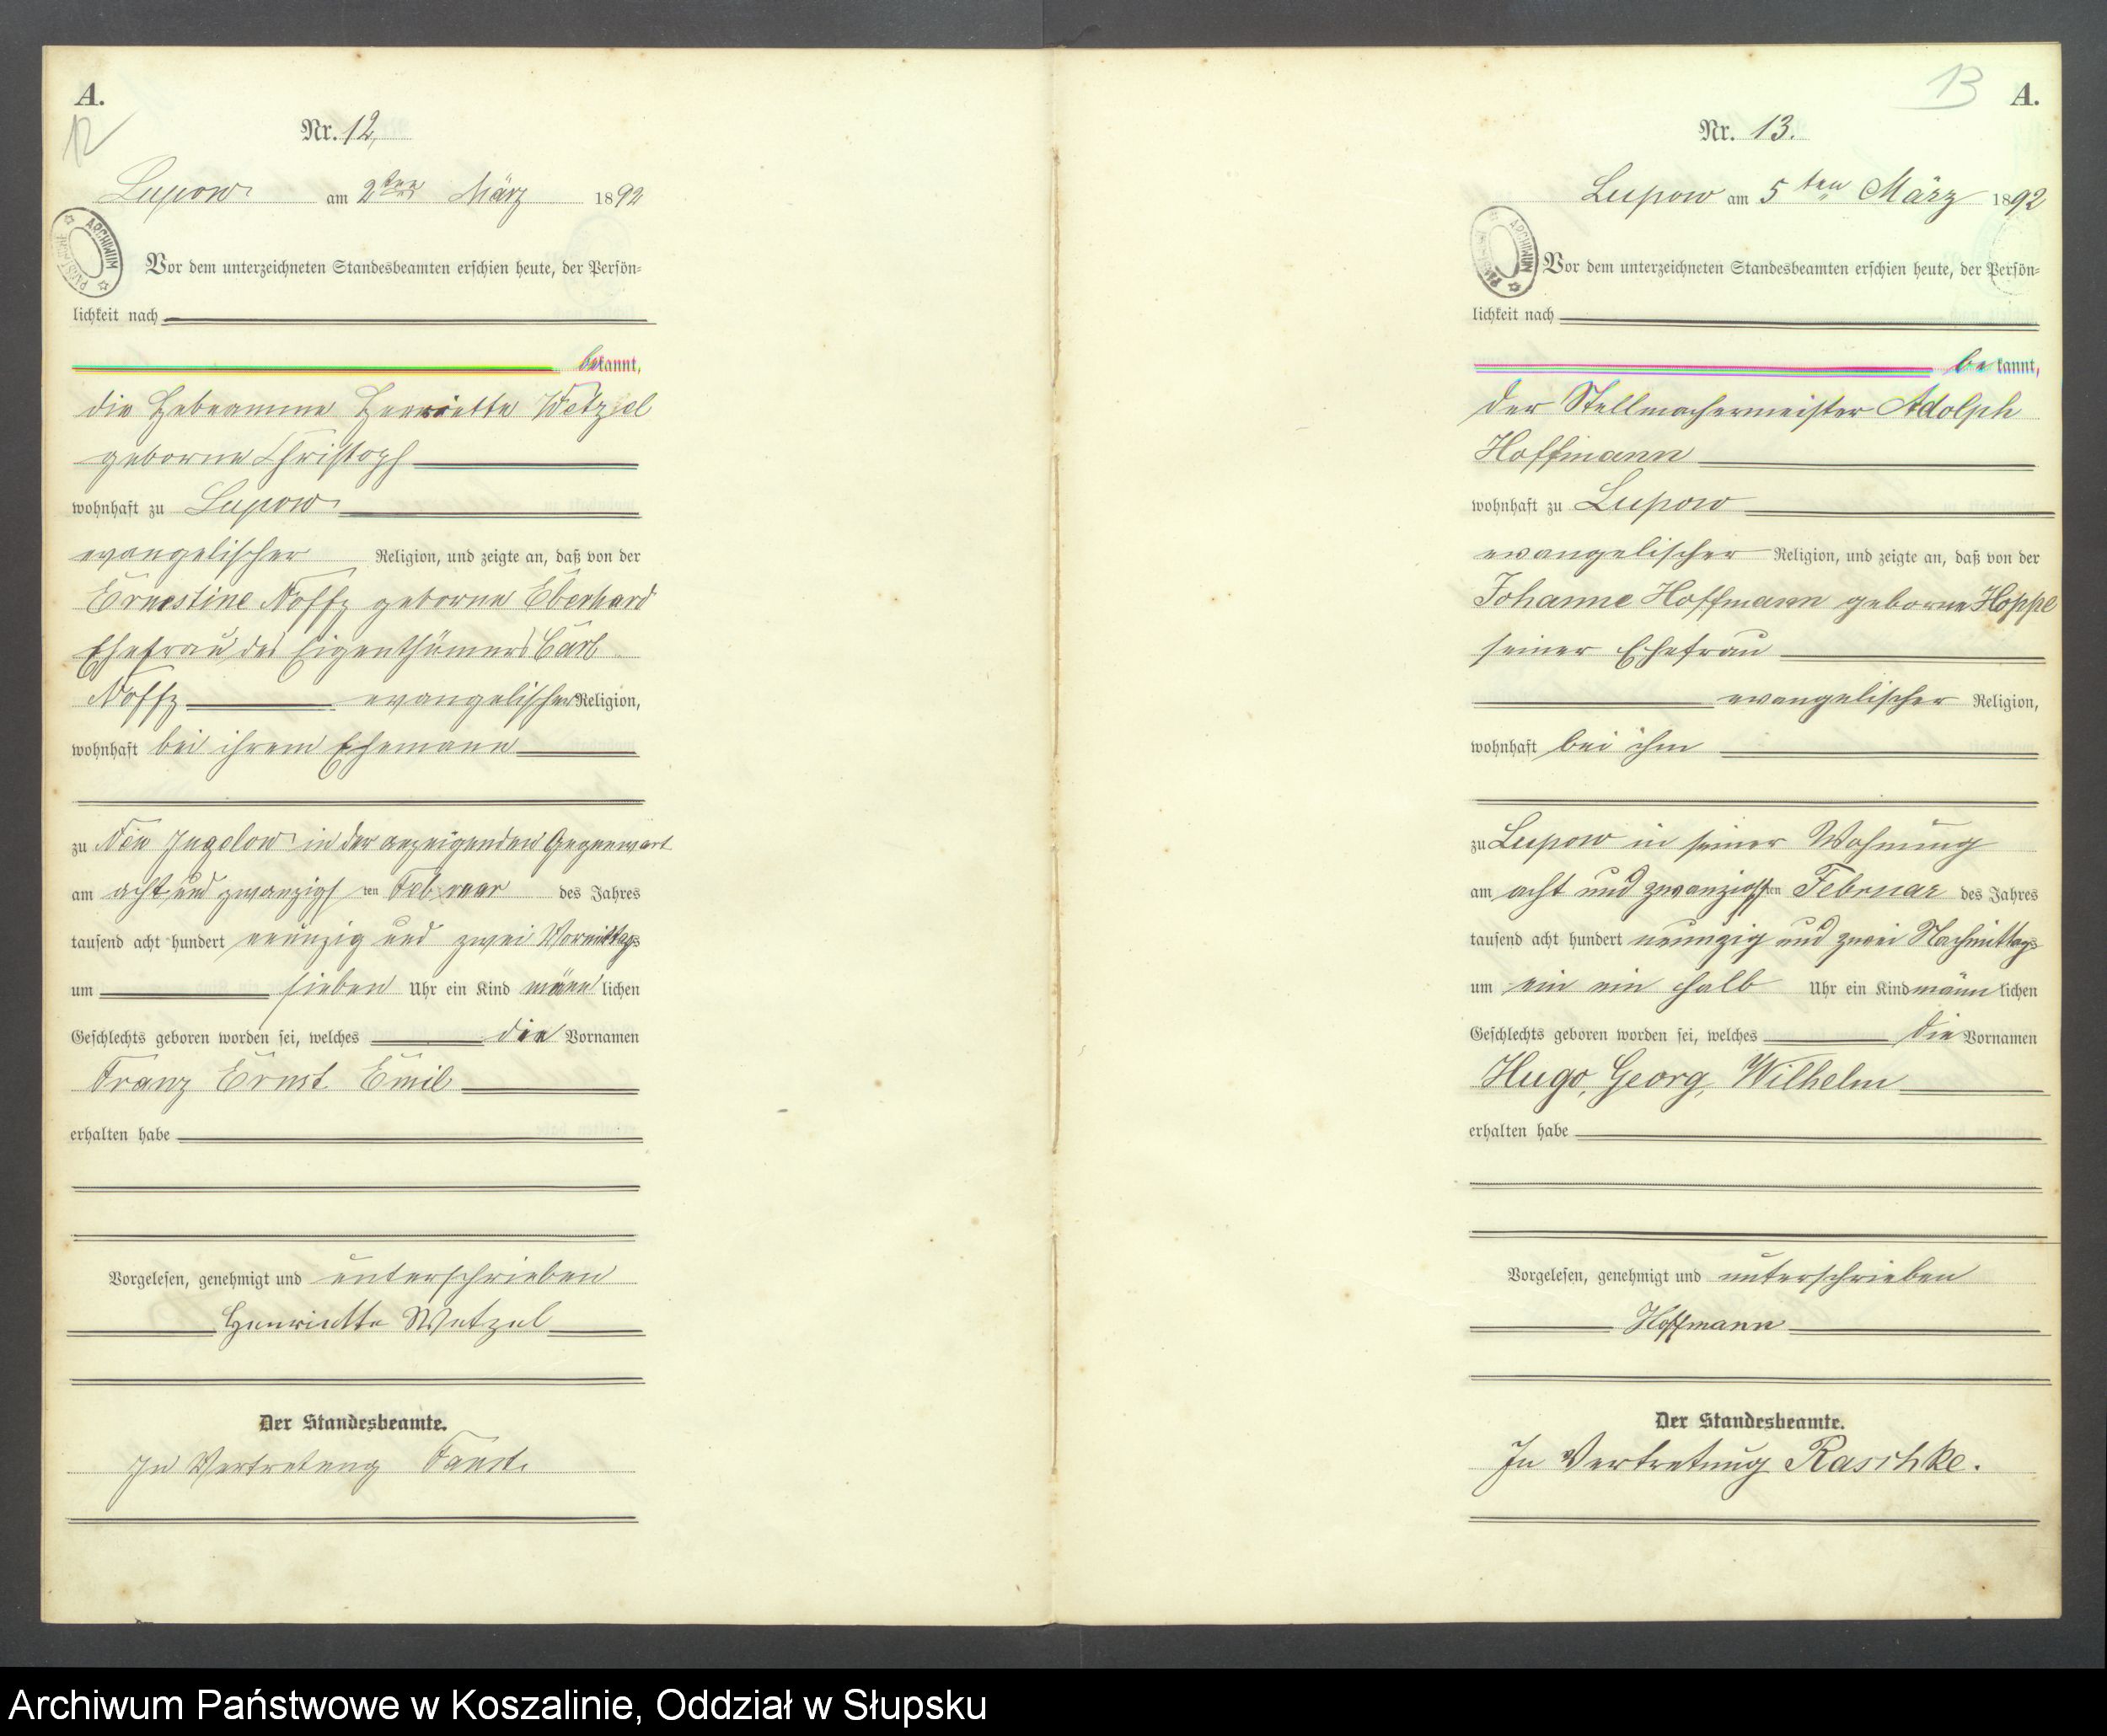 A.
12
Nr. 12,
Lupow am 2ten März 1892
Vor dem unterzeichneten Standesbeamten erschien heute, der Persön=
lichkeit nach
bekannt,
die Hebeamme Henriette Wetzel
geborne Christoph
wohnhaft zu Lupow
evangelischer Religion, und zeigte an, daß von der
Ernestine Noffz geborne Eberhard
Ehefrau des Eigenthümers Carl
Noffz evangelischer Religion,
wohnhaft bei ihrem Ehemann
zu Neu Jugelow in der anzeigenden Gegenwart
am acht und zwanzigsten Februar des Jahres
tausend acht hundert neunzig und zwei Vormittags
um sieben Uhr ein Kind männlichen
Geschlechts geboren worden sei, welches die Vornamen
Franz Ernst Emil
erhalten habe
Vorgelesen, genehmigt und unterschrieben
Henriette Wetzel
Der Standesbeamte.
In Vertretung
ARCHIWUM PAŃSTWOWE
13
A.
Nr. 13.
Lupow am 5ten März 1892
Vor dem unterzeichneten Standesbeamten erschien heute, der Persön=
lichkeit nach
bekannt,
der Stellmachermeister Adolph
Hoffmann
wohnhaft zu Lupow
evangelischer Religion, und zeigte an, daß von der
Johanne Hoffmann geborne Hoppe
seiner Ehefrau
evangelischer Religion,
wohnhaft bei ihm
zu Lupow in seiner Wohnung
am acht und zwanzigsten Februar des Jahres
tausend acht hundert neunzig und zwei Nachmittags
um ein ein halb Uhr ein Kind männlichen
Geschlechts geboren worden sei, welches die Vornamen
Hugo, Georg, Wilhelm
erhalten habe
Vorgelesen, genehmigt und unterschrieben
Hoffmann
Der Standesbeamte.
In Vertretung Raschke.
ARCHIWUM
Archiwum Państwowe w Koszalinie, Oddział w Słupsku